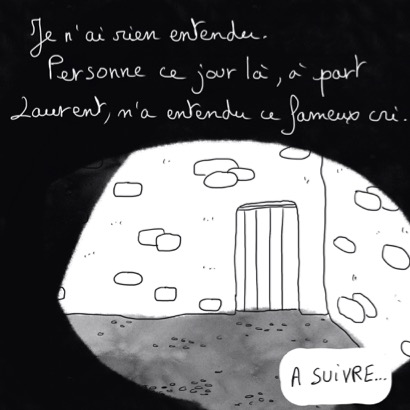 Je n'ai rien entendu.
Personne ce jour là, à part
Laurent, n'a entendu ce fameux cri.
A SUIVRE...